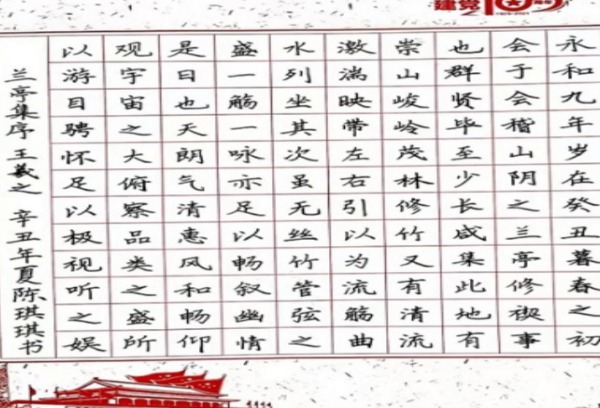 建党
永和九年岁在癸丑暮春之初
会于会稽山阴之兰亭修禊事
也群贤毕至少长咸集此地有
崇山峻岭茂林修竹又有清流
激湍映带左右引以为流觞曲
水列坐其次虽无丝竹管弦之
盛一觞一咏亦足以畅叙幽情
是日也天朗气清惠风和畅仰
观宇宙之大俯察品类之盛所
以游目骋怀足以极视听之娱
兰亭集序 王羲之 辛丑年夏陈琪琪书